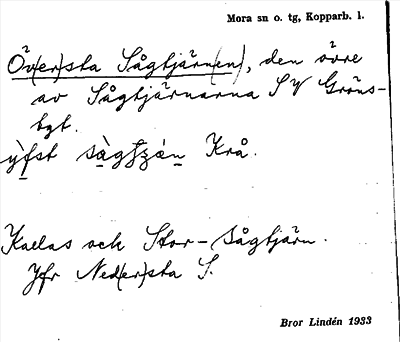 Mora sn o. tg, Kopparb. l.
Öv(er)sta Sågtjärn(en), den övre
av Sågtjärnarna S V Gröns-
bgt.
Krå.
Kallas och Stor-Sågtjärn.
Jfr Ned(er)sta S.
Bror Lindén 1933